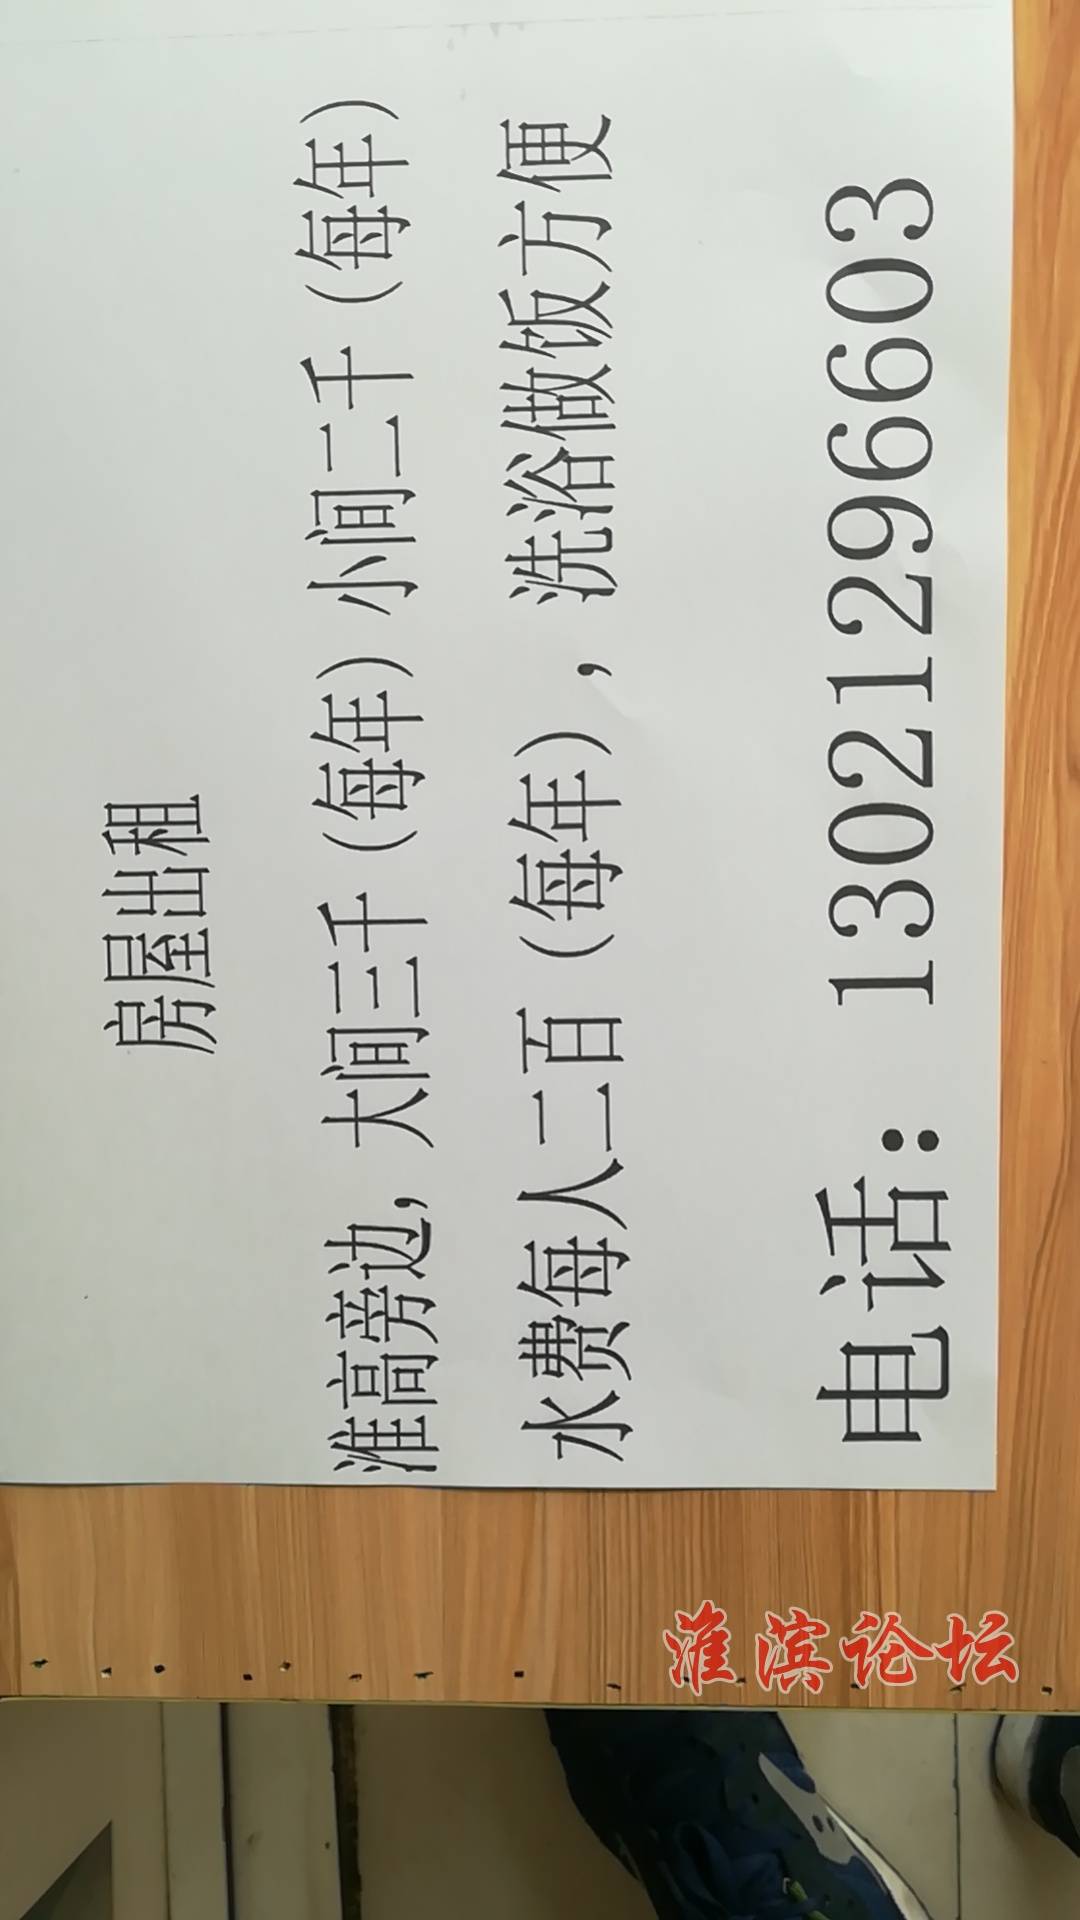 房屋出租
淮高旁边，大间三千（每年）小间二千（每年）
水费每人二百（每年），洗浴做饭方便
电话：13021296603
淮滨论坛